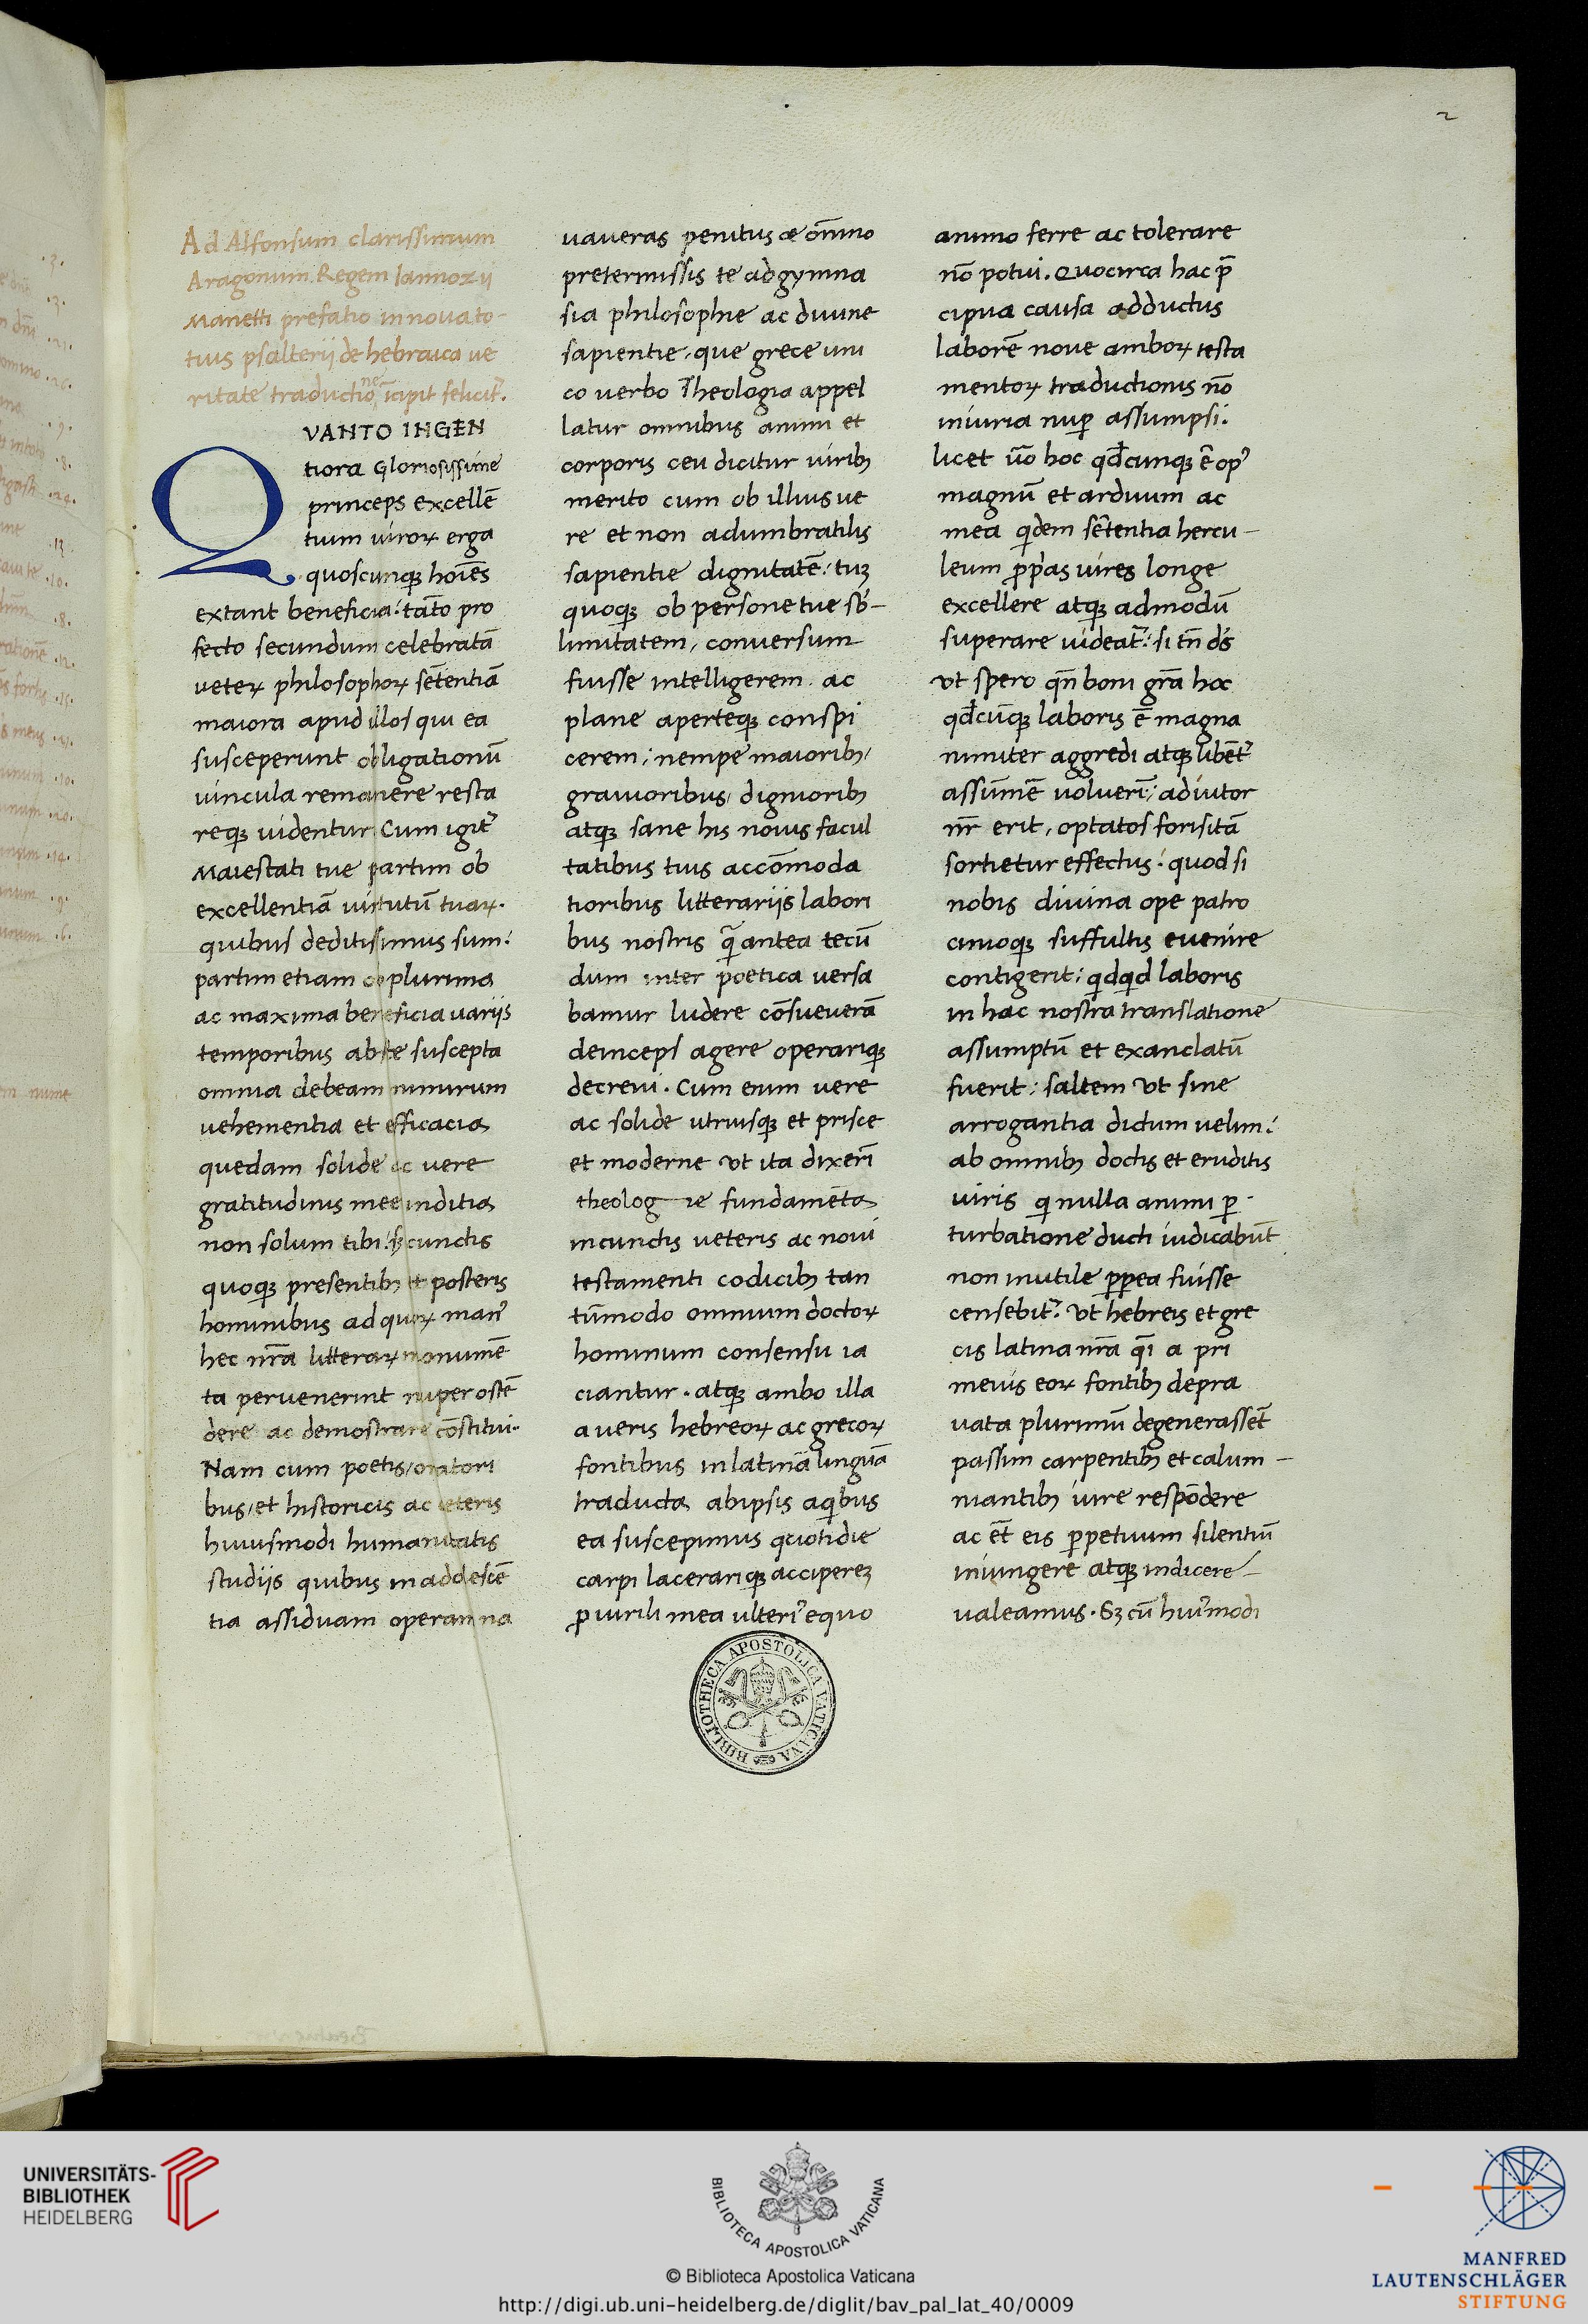 2
Ad Alfonsum clarissimum
Aragonum Regem Iannozii
Manetti prefatio in noua to-
tius psalterii de hebraica ue
ritate traductione īcipit felicit̃.
QVANTO INGEN
tiora Gloriosissime
princeps excellē
tium uiroꝝ erga
quoscunqꝫ hoīes
extant beneficia: tāto pro
fecto secundum celebratā
veteꝝ philosophoꝝ sētentiā
maiora apud illos qui ea
susceperunt obligationū
uincula remanere resta
reqꝫ uidentur Cum igit̃
Maiestati tue partim ob
excellentiā uirtutū tuaꝝ.
quibus deditissimus sum:
partim etiam ob plurima
ac maxima beneficia uariis
temporibus abs te suscepta
omnia debeam nimirum
uehementia et efficacia
quedam solide ac vere
gratitudinis mee inditia
non solum tibi: sꝫ cunctis
quoqꝫ presentibꝫ et posteris
hominibus ad quoꝝ man᾿
hec nr̃a litteraꝝ monumē
ta pervenerint nuper ostē
dere ac demostrare cōstitui.
Nam cum poetis, oratori
bus, et historicis ac ceteris
huiusmodi humanitatis
studiis quibus in addescē
tia assiduam operam na
uaueras penitus ac om̄ino
pretermissis te ad gymna
sia philosophie ac diuine
sapientie, que grece uni
co verbo Theologia appel
latur omnibus animi et
corporis ceu dicitur uiribꝫ
merito cum ob illius ue
re et non adumbratilis
sapientie dignitatē: tuꝫ
quoqꝫ ob persone tue sb-
limitatem, conversum
fuisse intelligerem ac
plane aperteqꝫ conspi
cerem; nempe maioribꝫ,
grauioribus, dignioribꝫ
atqꝫ sane his nouis facul
tatibus tuis accōmoda
tioribus litterariis labori
bus nostris q̄ antea tecū
dum inter poetica versa
bamur ludere cōsueverā
deinceps agere operariqꝫ
decrevi. Cum enim vere
ac solide utriusqꝫ et prisce
et moderne vt ita dixerī
theologie fundamēta
in cunctis veteris ac noui
testamenti codicibꝫ tan
tūmodo omnium doctoꝝ
hominum consensu ia
ciantur. atqꝫ ambo illa
a veris hebreoꝝ ac grecoꝝ
fontibus in latinā linguā
traducta ab ipsis a qibus
ea suscepimus quotidie
carpi lacerariqꝫ accipereꝫ
ꝓ uirili mea ulteri᾿ equo
animo ferre ac tolerare
nō potui. Quocirca hac p̄
cipua causa adductus
laborē noue amboꝝ testa
mentoꝝ traductionis nō
iniuria nuꝑ assumpsi.
licet u͞o hoc qd̄cunqꝫ ē op᾿
magnū et arduum ac
mea qidem sētentia hercu-
leum ꝓp̄as uires longe
excellere atqꝫ admodū
superare uideat̃: si tn̄ ds̄
vt spero qn̄ boni gr̄a hoc
qd̄cūqꝫ laboris ē magna
nimiter aggredi atqꝫ libēt̃
assumē volverī; adiutor
nr̄ erit, optatos forisitā
sortietur effectus: quod si
nobis divina ope patro
cinioqꝫ suffultis evenire
contigerit; qdqd laboris
in hac nostra translatione
assumptū et exanclatū
fuerit; saltem vt sine
arrogantia dictum velim:
ab omnibꝫ doctis et eruditis
viris qi nulla animi ꝑ-
turbatione ducti iudicabūt
non inutile ꝓpea fuisse
censebit̃. vt hebreis et gre
cis latina nr̄a qī a pri
meuis eoꝝ fontibꝫ depra
vata plurimū degenerassēt
passim carpentibꝫ et calum-
niantibꝫ iure respōdere
ac ēt eis ꝑpetuum silentiū
iniungere atqꝫ indicere
valeamus. Sꝫ cū hui᾿modi
BIBLIOTHECA APOSTOLICA VATICANA
UNIVERSITÄTS-
BIBLIOTHEK
HEIDELBERG
BIBLIOTECA APOSTOLICA VATICANA
© Biblioteca Apostolica Vaticana
http://digi.ub.uni-heidelberg.de/diglit/bav_pal_lat_40/0009
MANFRED
LAUTENSCHLÄGER
STIFTUNG